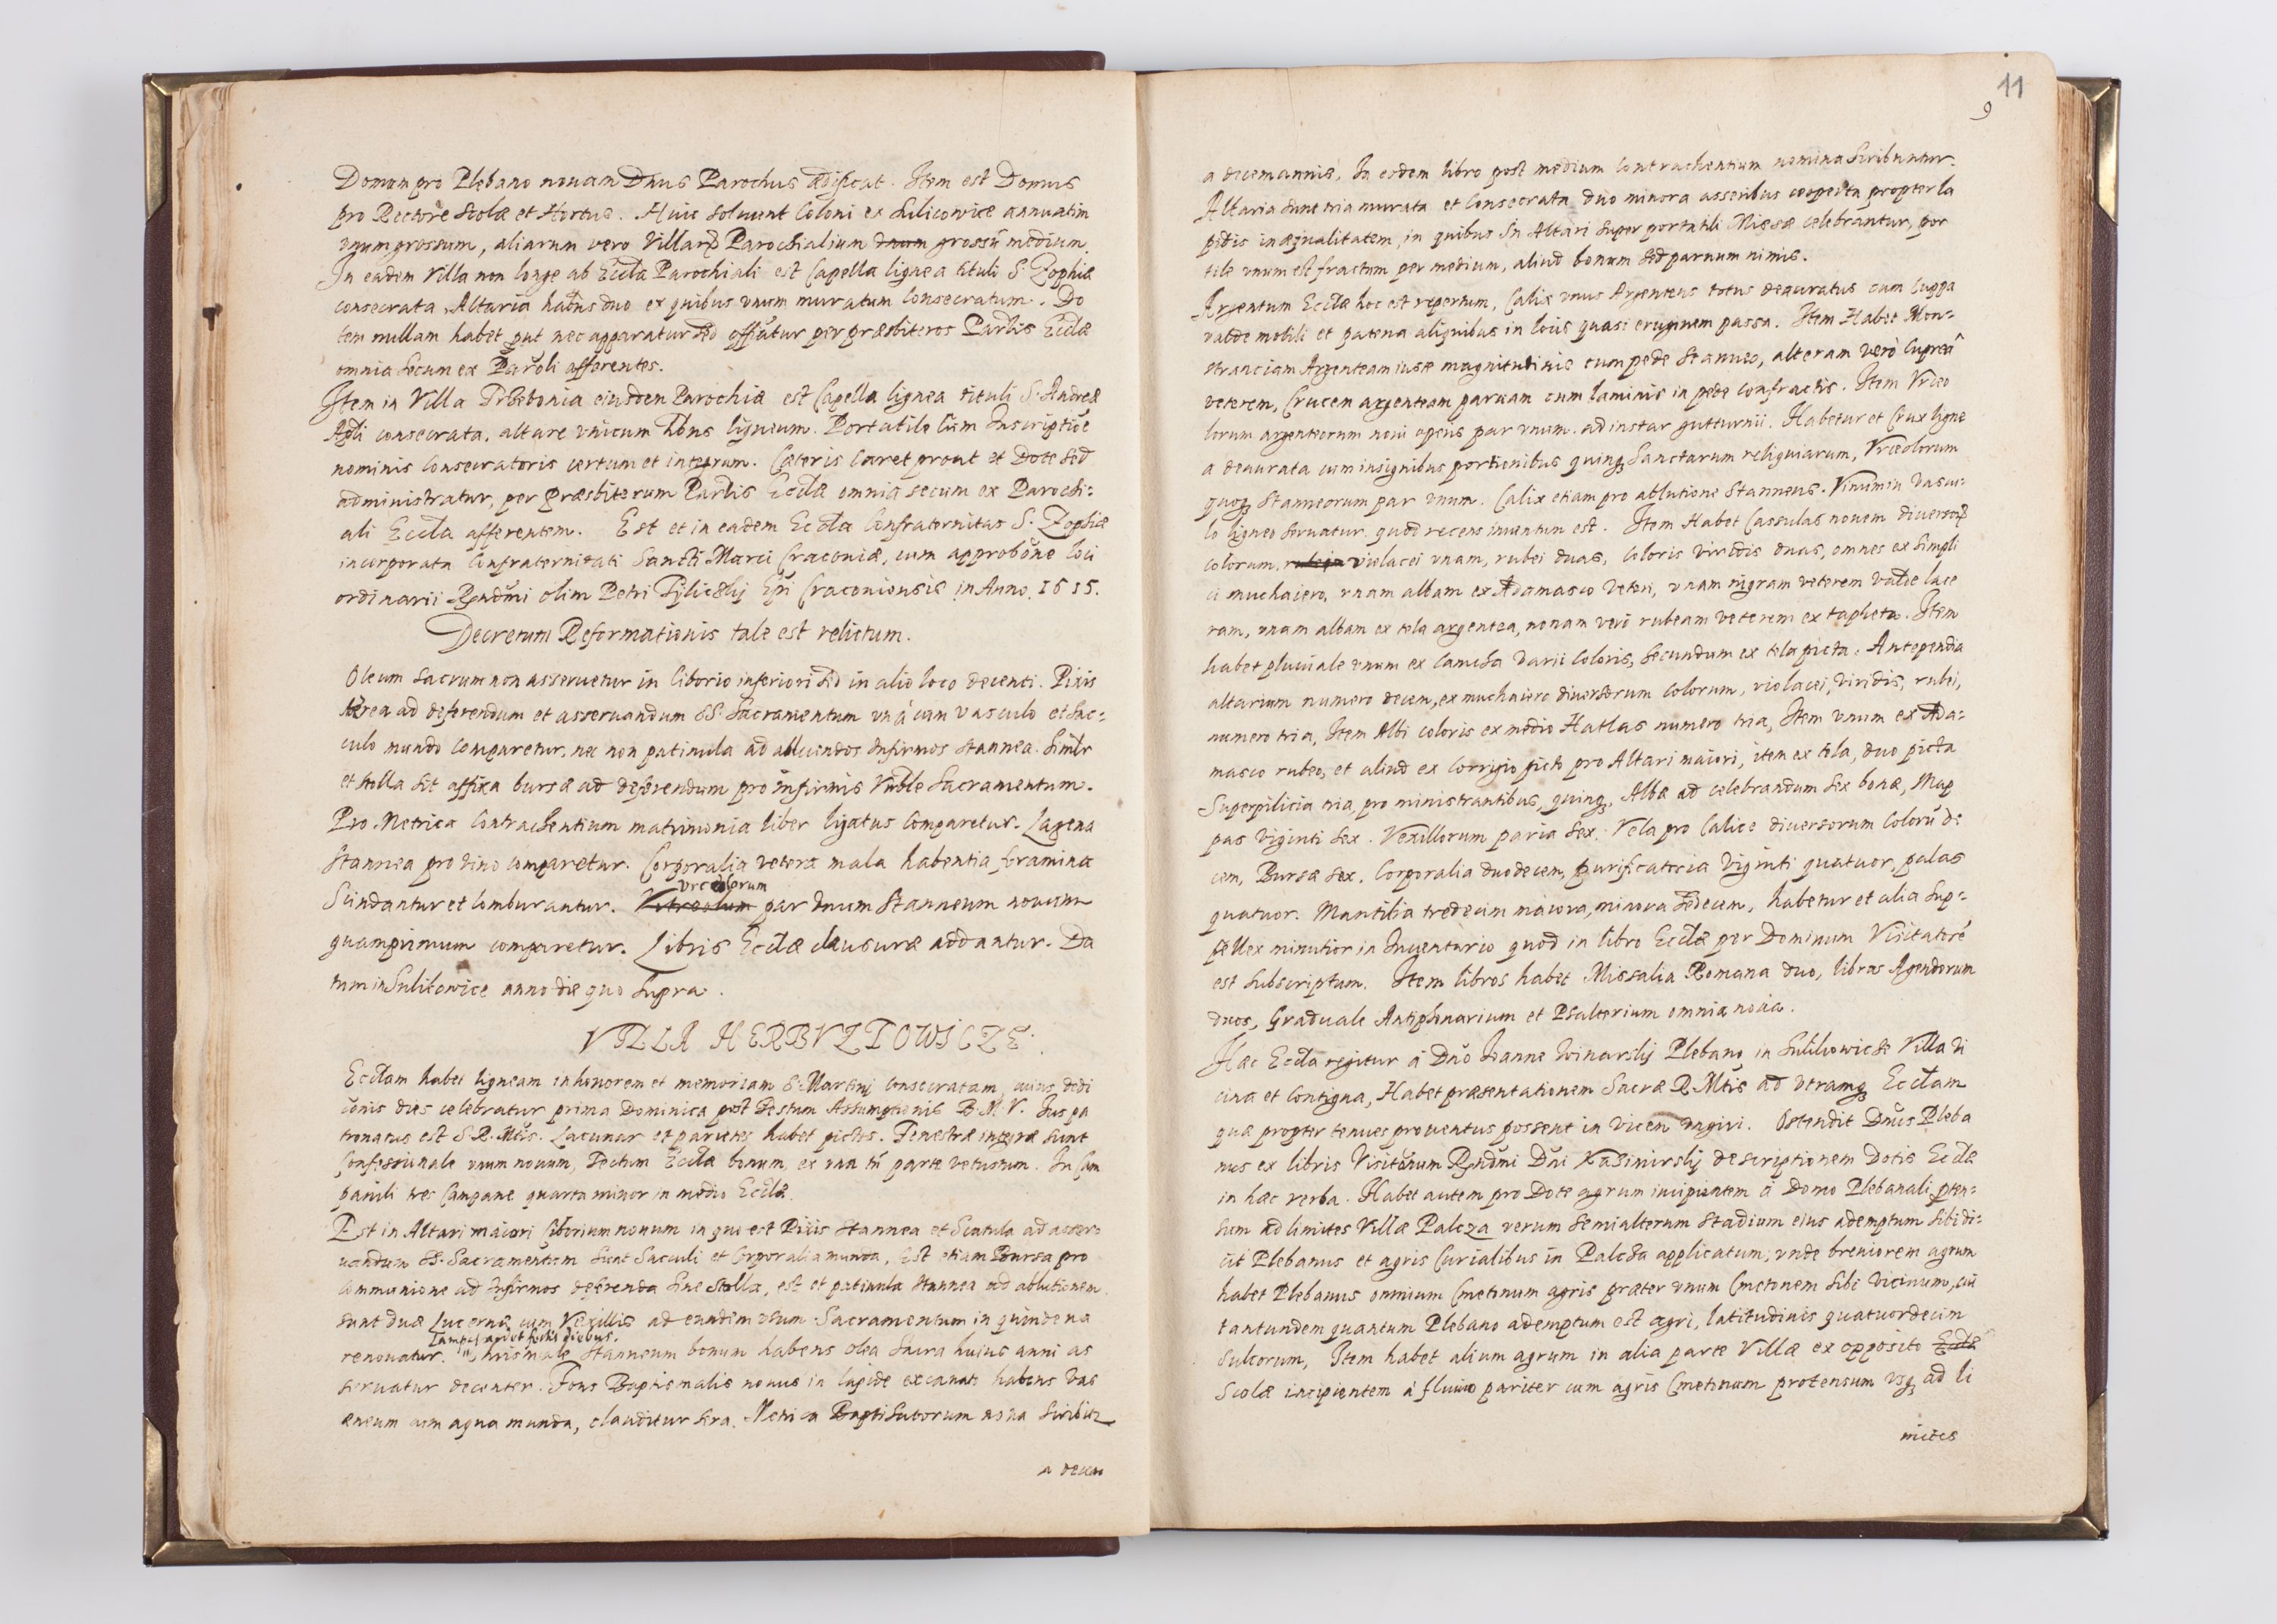 Domum pro Plebano nouam Dnus Parochus ædificat. Item est Domus
pro Rectore Scolæ et Hortus. Huic soluunt Coloni ex Sulicowice annuatim
unum grossum, aliarum vero Villarum Parochialium grossū medium.
In eadem Villa non longe ab Eccla Parochiali est Capella lignea tituli S. Zophiæ
consecrata, Altaria habens duo ex quibus unum muratum Consecratum. Do
tem nullam habet put nec apparatur sed offitiatur per præsbiteros Parlis Ecclæ
omnia secum ex Paroli afferentes.
Item in Villa Trzebonia eiusdem Parochiæ est Capella lignea tituli S. Andreæ
Apli consecrata, altare vnicum hñns ligneum. Portatile cum Inscriptiõe
nominis Consecratoris certum et integrum. Cæteris caret prout et Dote sed
administratur, per Præsbiterum Parlis Ecclæ omnia secum ex Parochi=
ali Eccla afferentem. Est et in eadem Eccla Confraternitas S. Zophiæ
incorporata Confraternitati Sancti Marci Cracouiæ, cum approbõne loci
ordinarii Rndmi olim Petri Tÿlicslij Epi Cracouiensis in Anno. 1615.
Decretum Reformationis tale est relictum.
Oleum Sacrum non asseruetur in Ciborio inferiori sed in alio loco decenti. Pixis
ærea ad deferendum et asseruandum SS. Sacramentum vnà cum vasculo et Sac=
culo mundo Comparetur, nec non patinula ad abluendos Infirmos stannea. Simlr
et stolla sit affixa bursæ ad deferendum pro infirmis Vnble Sacramentum.
Pro Metrica Contrachentium matrimonia liber ligatus Comparetur. Lagena
stannea pro vino comparetur. Corporalia vetera mala habentia foramina
vrceolorum
Scindantur et Comburantur. par vnum stanneum nouum
quamprimum comparetur. Libris Ecclæ clausuræ addantur. Da
tum in Sulikowice anno die quo supra.
VILLA HERBVLTOWICZE.
Ecclam habet ligneam in honorem et memoriam S. Martinj Consecratam, cuius dedi
cãnis dies celebratur prima Dominica post Festum Assumptionis B. M. V. Ius pa
tronatus est S. R. Mtis. Lacunar et parietes habet pictos. Fenestræ integræ sunt
Confessionale vnum nouum, Tectum Ecclæ bonum, ex vna tñ parte vetustum. In Cam
panili tres Campane quarta minor in medio Ecclæ.
Est in Altari maiori Ciborium nouum in quo est Pixis stannea et Scatula ad asser=
uandum SS. Sacramentum sunt Sacculi et Corporalia munda, Est etiam Bursa pro
Communione ad Infirmos deferenda sine stolla, est et patinula stannea ad ablutionem.
sunt duæ Lucernæ cum Vexillis ad eundem vsum Sacramentum in quindena
Lampas ardet festis diebus.
renouatur. Chrismale stanneum bonum habens olea sacra huius anni as
seruatur decenter. Fons Baptismalis nouus in lapide excauato habens Vas
æneum cum aqua munda, clauditur sera. Metrica Baptisatorum noua scribitur
a decem
11
9
a decem annis, In eodem libro post medium Contrachentium nomina scribuntur.
Altaria sunt tria murata et Consecrata duo minora asseribus cooperta propter la
pidis inæqualitatem, in quibus in Altari super portatili Missæ celebrantur, por
tile vnum est fractum per medium, aliud bonum sed paruum nimis.
Argentum Ecclæ hoc est repertum, Calix vnus Argenteus totus deauratus cum Cuppa
valde mobili et patena aliquibus in locis quasi eruginem passa. Item Habet Mon=
stranciam Argenteam iustæ magnitudinis cum pede stanneo, alteram verò Cupreã
veterem, Crucem argenteam paruam cum laminis in pede confractis. Item Vrceo
lorum argenteorum noui operis par vnum ad instar gutturnii. Habetur et Crux ligne
a deaurata cum insignibus portionibus quinq; Sanctarum reliquiarum, Vrceolorum
quoq; stanneorum par vnum. Calix etiam pro ablutione stanneus. Vinum in vascu=
lo ligneo seruatur quod recens inuentum est. Item Habet Cassulas nouem diuersorum
colorum, violacei vnam, rubei duas, Coloris viridis duas, omnes ex simpli
ci muchaiero, vnam albam ex Adamasco veteri, vnam nigram veterem valde lace
ram, vnam albam ex tela argentea, nonam verò rubeam veterem ex tapheta. Item
habet pluuiale vnum ex Camcha varii Coloris, Secundum ex tela picta. Antependia
altarium numero decem, ex muchaiero diuersorum Colorum, violacei, viridis, rubei,
numero tria, Item Albi coloris ex medio Hatlas numero tria, Item vnum ex Ada=
masco rubeo, et aliud ex Corrigio picto pro Altari maiori, item ex tela, duo picta
Superpilicia tria, pro ministrantibus, quinq; Albæ ad celebrandum sex bonæ, Map
pas viginti sex. Vexillorum paria sex. Vela pro Calice diuersorum Colorũ de
cem, Bursæ sex, Corporalia duodecem, purificatoria viginti quatuor, palas
quatuor. Mantilia tredecim maiora, minora sedecem, habetur et alia sup=
pellex minutior in Inuentario quod in libro Ecclæ per Dominum Visitatorẽ
est subscriptum. Item libros habet Missalia Romana duo, libros Agendorum
duos, Graduale Antiphonarium et Psalterium omnia noua.
Hæc Eccla regitur à Dño Ioanne Plebano in Sulikowicze Villa vi
cina et Contigua, Habet præsentationem Sacræ R. Mtis ad vtramq; Ecclam
quæ propter tenues prouentus possent in vicem vngiri. Ostendit Dnus Pleba
nus ex libris Visitõnum Rndmi Dni Kasimirslij descriptionem Dotis Ecclæ
in hæc verba. Habet autem pro Dote agrum incipientem à Domo Plebanali pten=
sum ad limites Villæ Palcza verum semialterum stadium eius ademptum sibi di=
cit Plebanus et agris Curialibus in Palcza applicatum, vnde breuiorem agrum
habet Plebanus omnium Cmetonum agris præter vnum Cmetonem sibi vicinum, cui
tantundem quantum Plebano ademptum est agri, latitudinis quatuordecim
sulcorum, Item habet alium agrum in alia parte Villæ ex opposito Ecclæ
Scolæ incipientem à fluuio pariter cum agris Cmetonum protensum vsq; ad li
mites